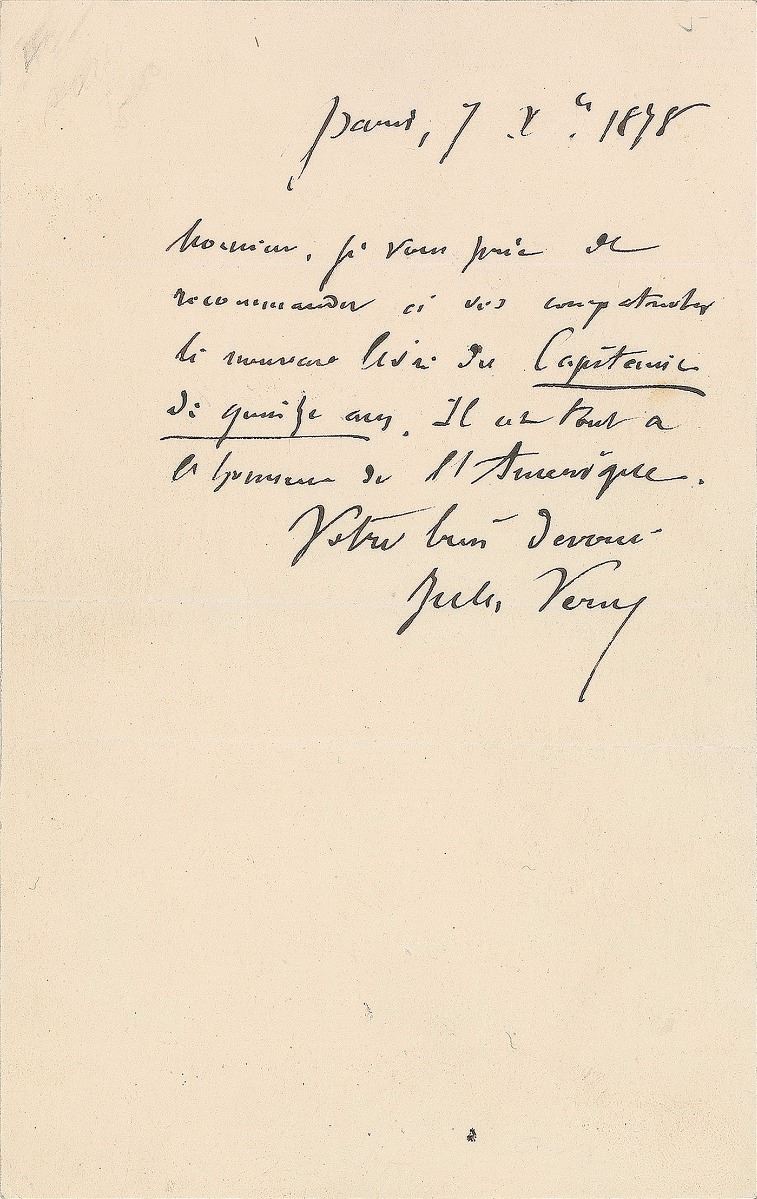 Paris, 7 Xbre 1878
Monsieur, je vous prie de
recommander à vos compatriotes
le nouveau livre du Capitaine
de quinze ans. Il est tout à
l'honneur de l'Amérique.
Votre bien dévoué
Jules Verne